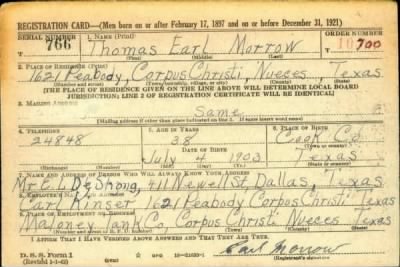 REGISTRATION CARD—(Men born on or after February 17, 1897 and on or before December 31, 1921)
SERIAL NUMBER 1. NAME (Print) ORDER NUMBER
766 Thomas Earl Morrow 10700
(First) (Middle) (Last)
2. PLACE OF RESIDENCE (Print)
1621 Peabody, Corpus Christi, Nueces, Texas
(Number and street) (Town, township, village, or city) (County) (State)
[THE PLACE OF RESIDENCE GIVEN ON THE LINE ABOVE WILL DETERMINE LOCAL BOARD
JURISDICTION; LINE 2 OF REGISTRATION CERTIFICATE WILL BE IDENTICAL]
3. MAILING ADDRESS
Same
[Mailing address if other than place indicated on line 2. If same insert word same]
4. TELEPHONE 5. AGE IN YEARS 6. PLACE OF BIRTH
24848 38 Cook Co.
DATE OF BIRTH (Town or county)
July 4 1903 Texas
(Exchange) (Number) (Mo.) (Day) (Yr.) (State or country)
7. NAME AND ADDRESS OF PERSON WHO WILL ALWAYS KNOW YOUR ADDRESS
Mr E. L. DeShong, 411 Newell St. Dallas, Texas
8. EMPLOYER'S NAME AND ADDRESS
Earl Kinser 1621 Peabody Corpus Christi Texas
9. PLACE OF EMPLOYMENT OR BUSINESS
Maloney Tank Co, Corpus Christi Nueces Texas
(Number and street or R. F. D. number) (Town) (County) (State)
I AFFIRM THAT I HAVE VERIFIED ABOVE ANSWERS AND THAT THEY ARE TRUE.
D. S. S. Form 1 Earl Morrow